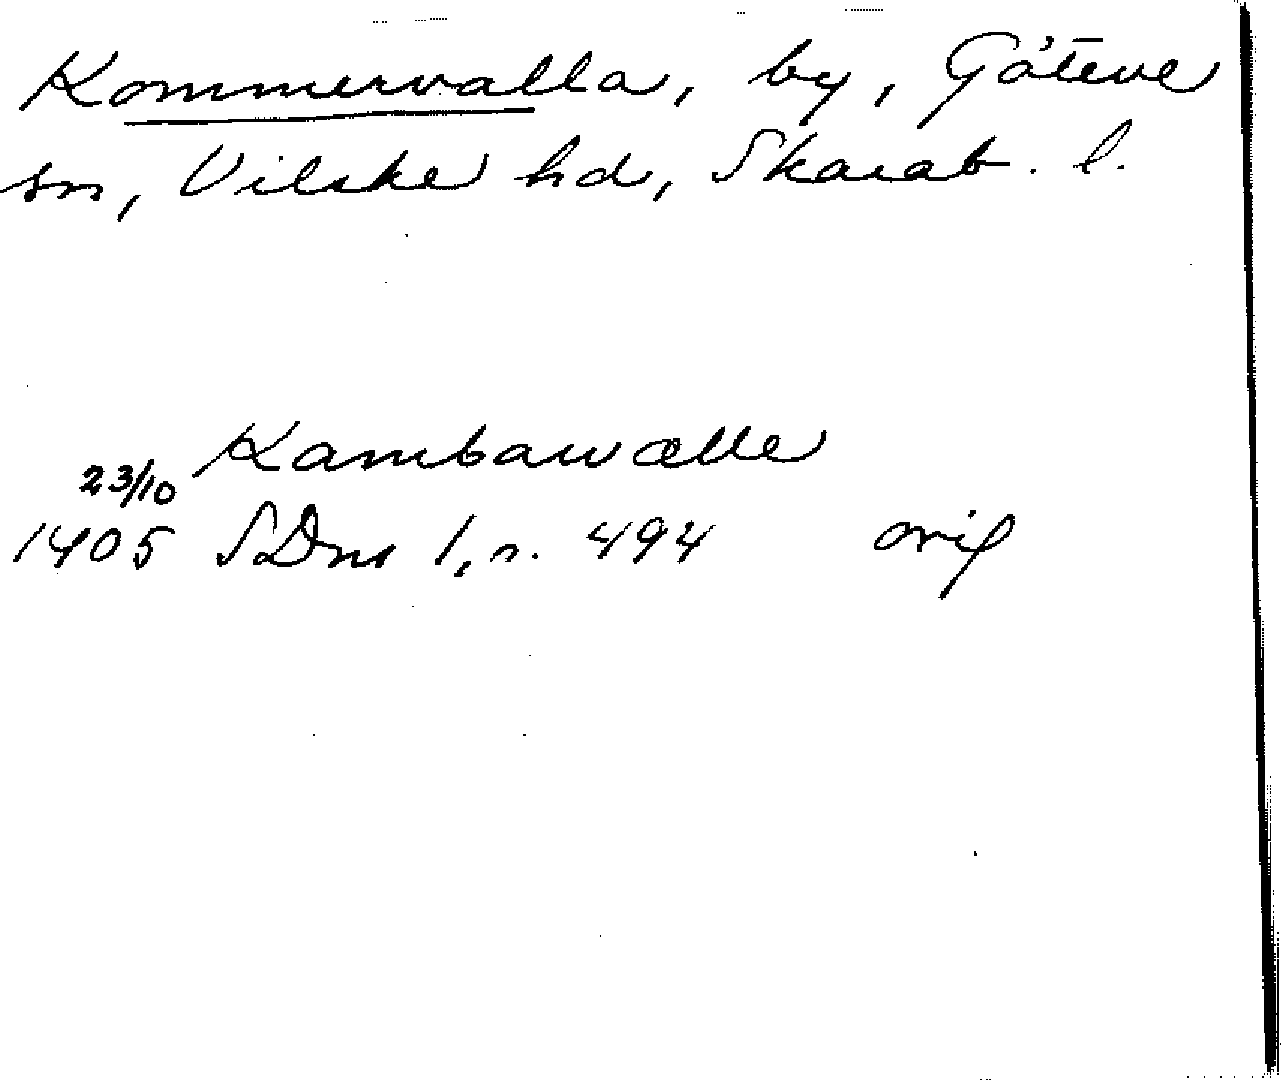 Kommervalla, by, Göteve
sn, Vilske hd, Skarab. l.
Kambawælle
23/10
1405 SDns 1, s. 494 orig